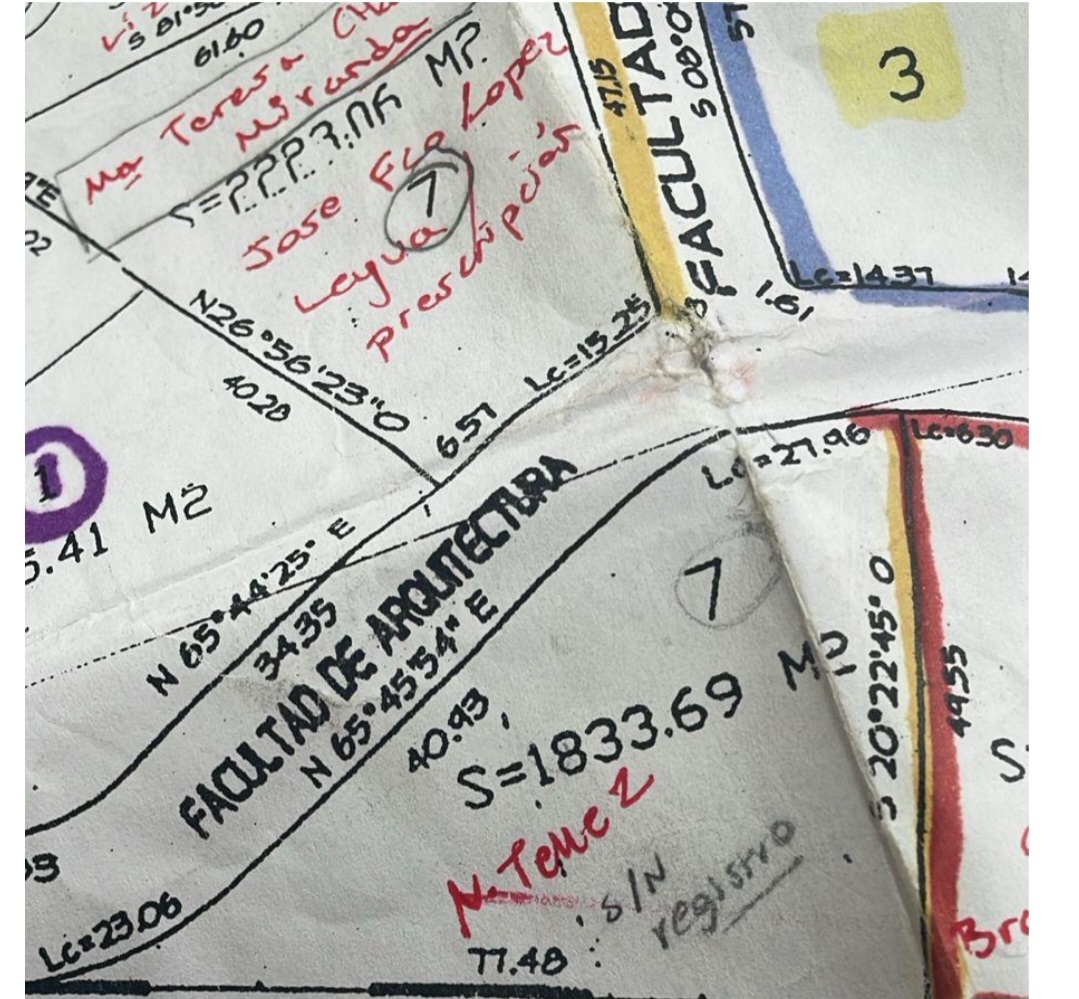 61.60
Ma Teresa
Miranda
M2
Jose Fco Lopez
Leyva
prescripción
7
47.15
FACULTAD
3
Lc=14.37
1.61
N26°56'23"O
40.28
6.57
Lc=15.25
1
5.41 M2
N 65°44'25" E
34.35
FACULTAD DE ARQUITECTURA
N 65°45'54" E
40.93
Lc=27.96
Lc=6.30
7
S=1833.69 M2
N. Tellez
s/N
registro
S 20°22'45" O
49.55
Lc=23.06
77.48